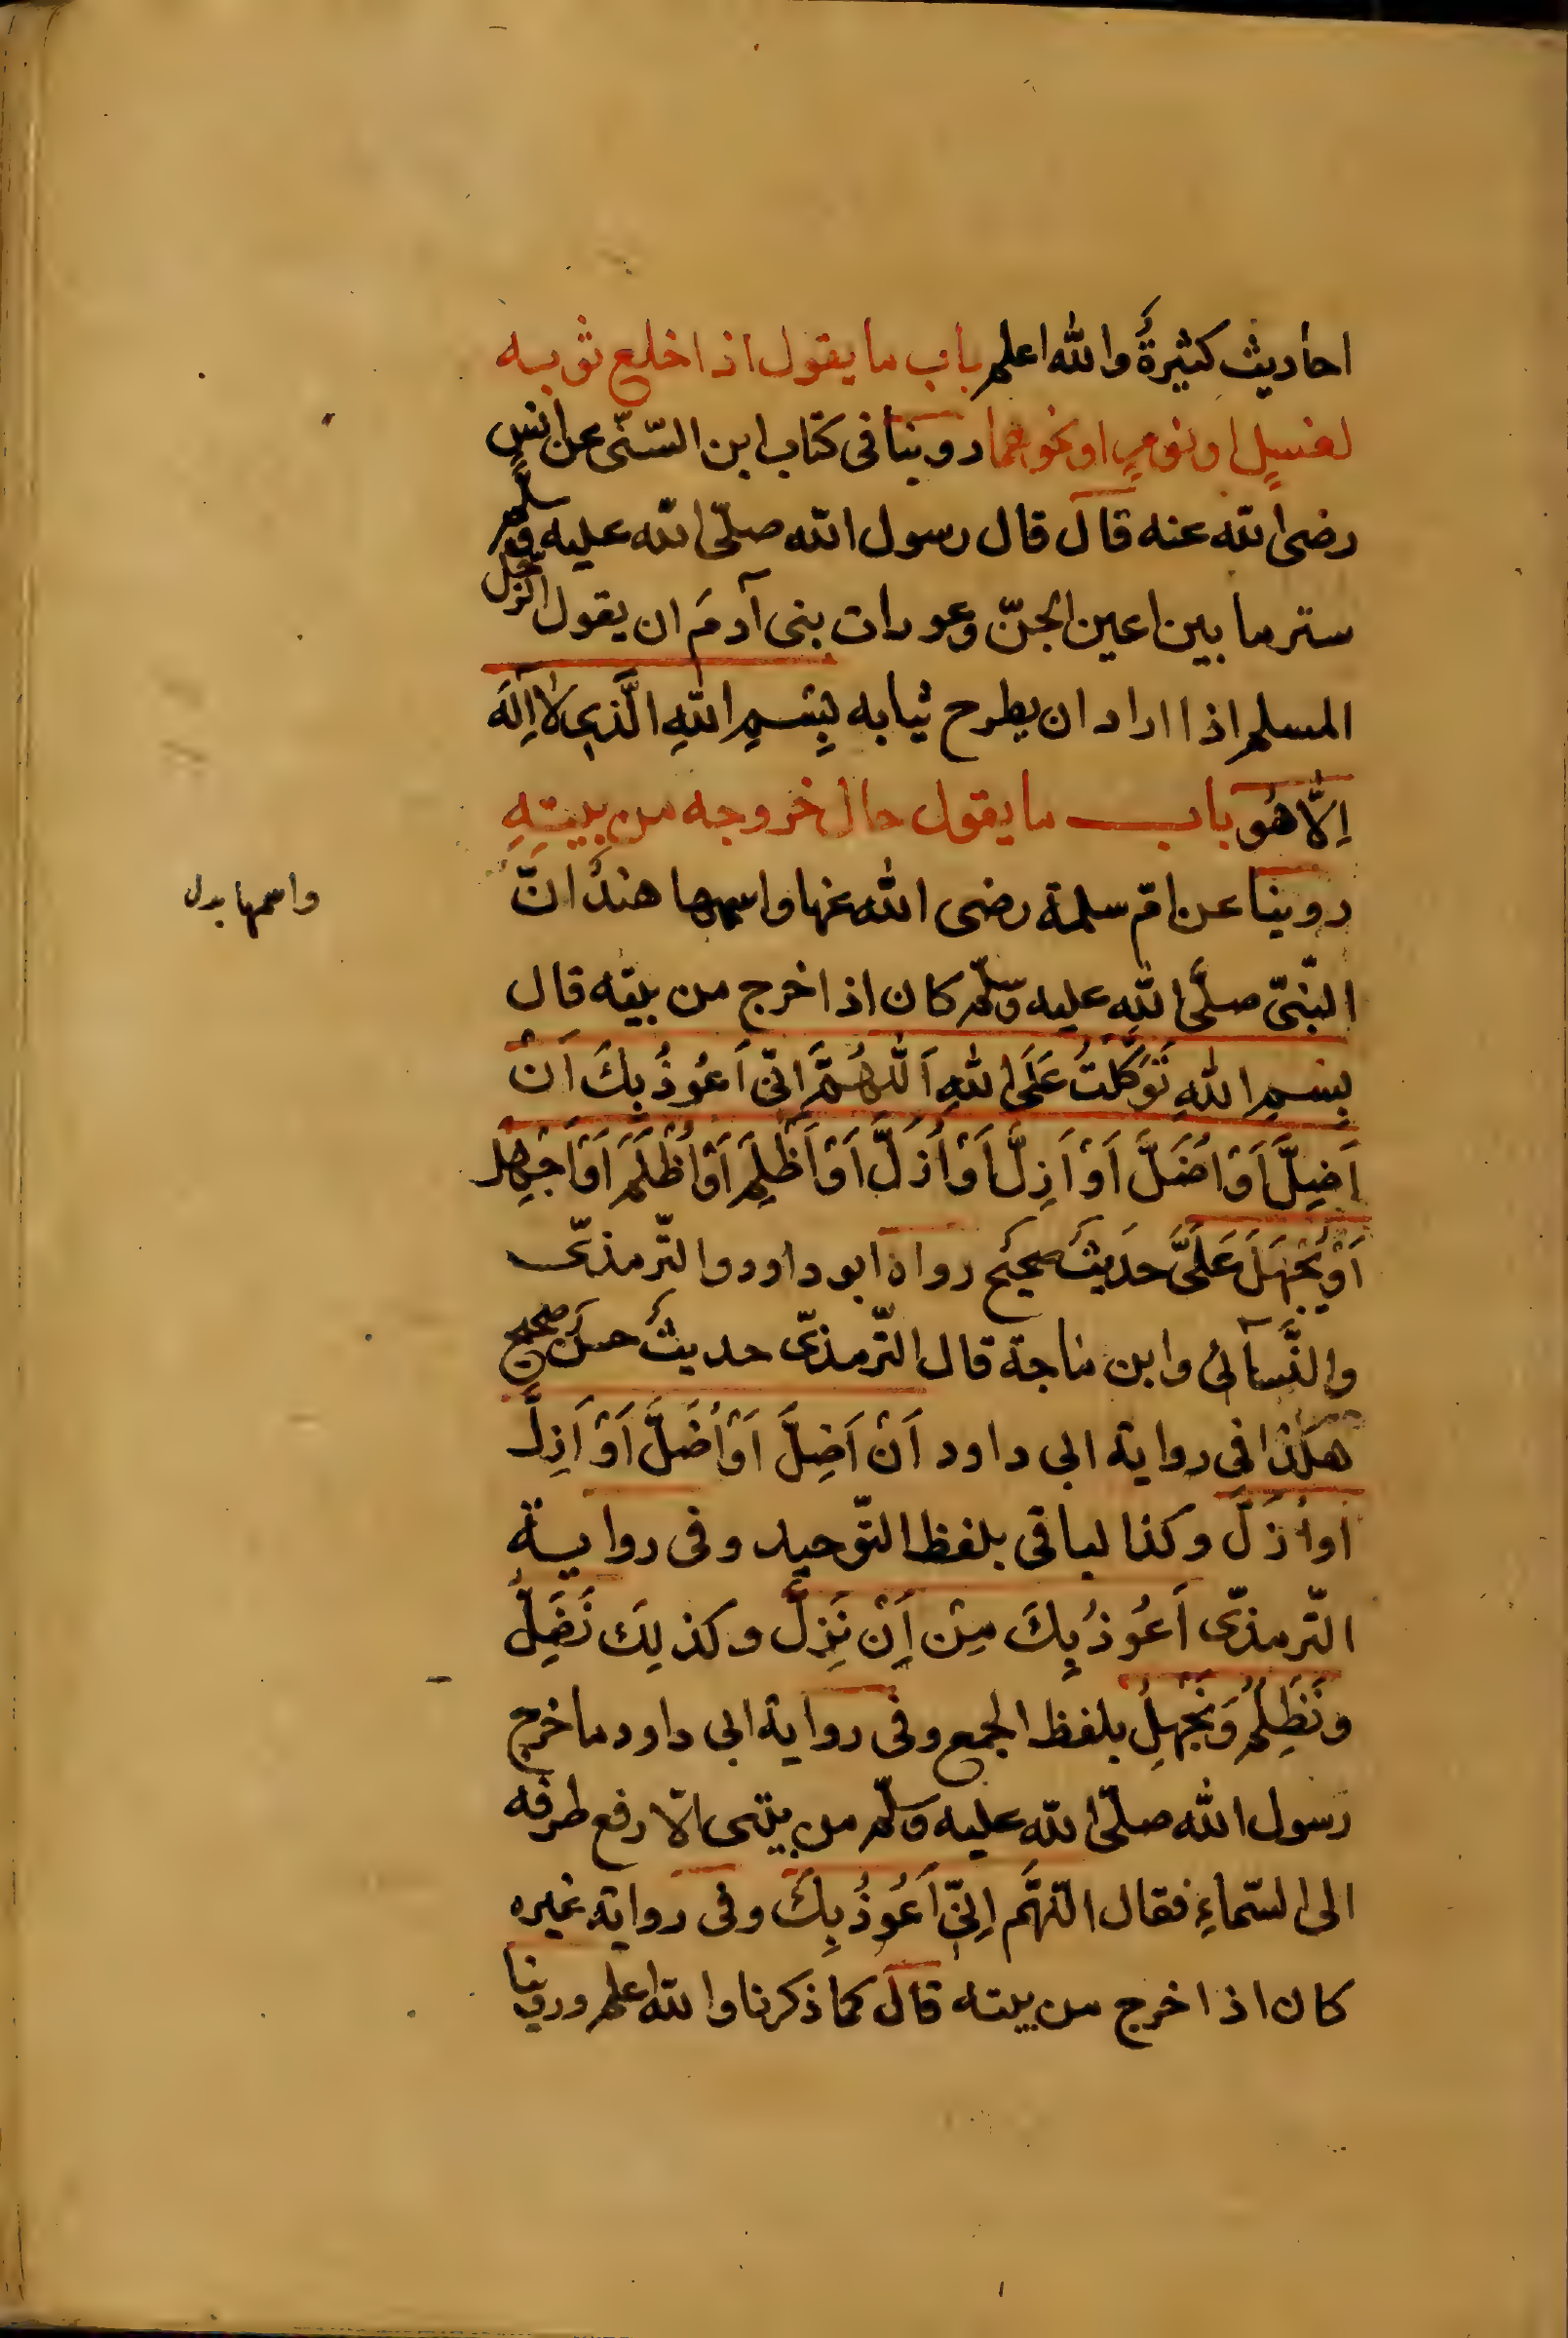 احاديث كثيرةٌ والله اعلم باب ما يقول اذا خلع ثوبه
لغسلٍ او نومٍ او نحوهما روينا فى كتاب ابن السّنّى عن انسٍ
رضى الله عنه قالَ قال رسول الله صلّى الله عليه وسلّم
ستر ما بين اعين الجنّ وعورات بنى آدمَ ان يقول الرّجل
المسلم اذا اراد ان يطرح ثيابه بِسْمِ اللهِ الَّذِى لَا اِلَهَ
اِلَّا هُو باب ما يقول حال خروجه من بيتِهِ
روينا عن امّ سلمة رضى الله عنها واسمها هندٌ انَّ
النّبىّ صلَّى الله عليه وسلّم كان اذا خرج من بيته قال
بِسْمِ اللهِ تَوَكَّلْتُ عَلَى اللهِ اَللّهُمَّ اِنّى اَعُوذُ بِكَ اَنْ
اَضِلَّ اَوْ اُضَلَّ اَوْ اَزِلَّ اَوْ اُزَلَّ اَوْ اَظْلِمَ اَوْ اُظْلَمَ اَوْ اَجْهِلَ
اَوْ يُجْهَلَ عَلَىَّ حَديثٌ صحيحٌ رواه ابو داود والتّرمذىّ
والنَّسآئى وابن ماجة قال التّرمذىّ حديثٌ حسنٌ صحيح
هكذا فى رواية ابى داود اَنْ اَضِلَّ اَوْ اُضَلَّ اَوْ اَزِلَّ
او اُزَلَّ وكذا لباقى بلفظ التّوحيد وفى رواية
التّرمذىّ اَعُوذُ بِكَ مِنْ اَنْ نَزِلَّ وكذلِكَ نَضِلُّ
ونَظِلمُ وَنَجْهلُ بلفظ الجمع وفى رواية ابى داود ما خرج
رسول الله صلّى الله عليه وسلّم من بيتى الّا رفع طرفه
الى السّماءِ فقال اللّهُمَّ اِنّى اَعُوذُ بِكَ وفى رواية غيره
كان اذا خرج من بيته قالَ كما ذكرنا والله اعلم وروينا
واسمها بدل